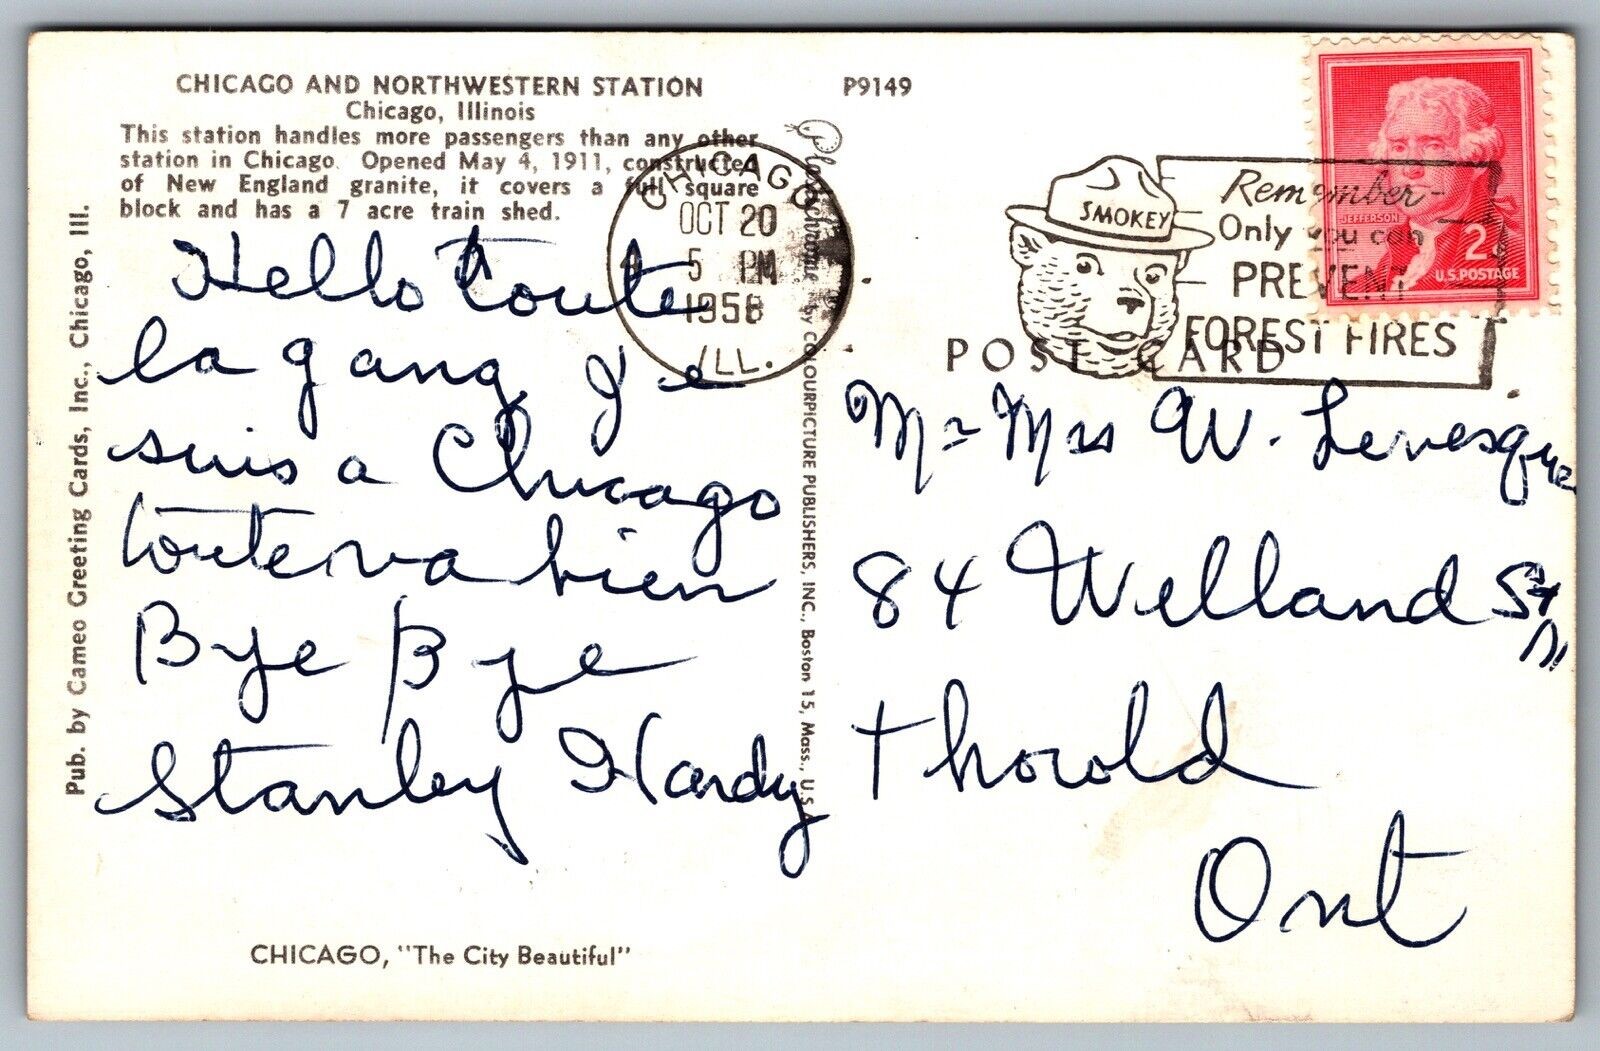 CHICAGO AND NORTHWESTERN STATION
Chicago, Illinois
This station handles more passengers than any other
station in Chicago. Opened May 4, 1911, constructed
of New England granite, it covers a full square
block and has a 7 acre train shed.
P9149
Pub. by Cameo Greeting Cards, Inc., Chicago, Ill.
Plastichrome by COLOURPICTURE PUBLISHERS, INC., Boston 15, Mass., U.S.A.
CHICAGO
OCT 20
5 PM
1958
ILL.
SMOKEY
Remember-
Only you can
PREVENT
FOREST FIRES
JEFFERSON
2¢
U.S. POSTAGE
POST CARD
Hello toute
la gang J'e
suis a Chicago
toute va bien
Bye Bye
Stanley Hardy
Mr Mrs W. Levesque
84 Welland St
N
thorold
Ont
CHICAGO, "The City Beautiful"